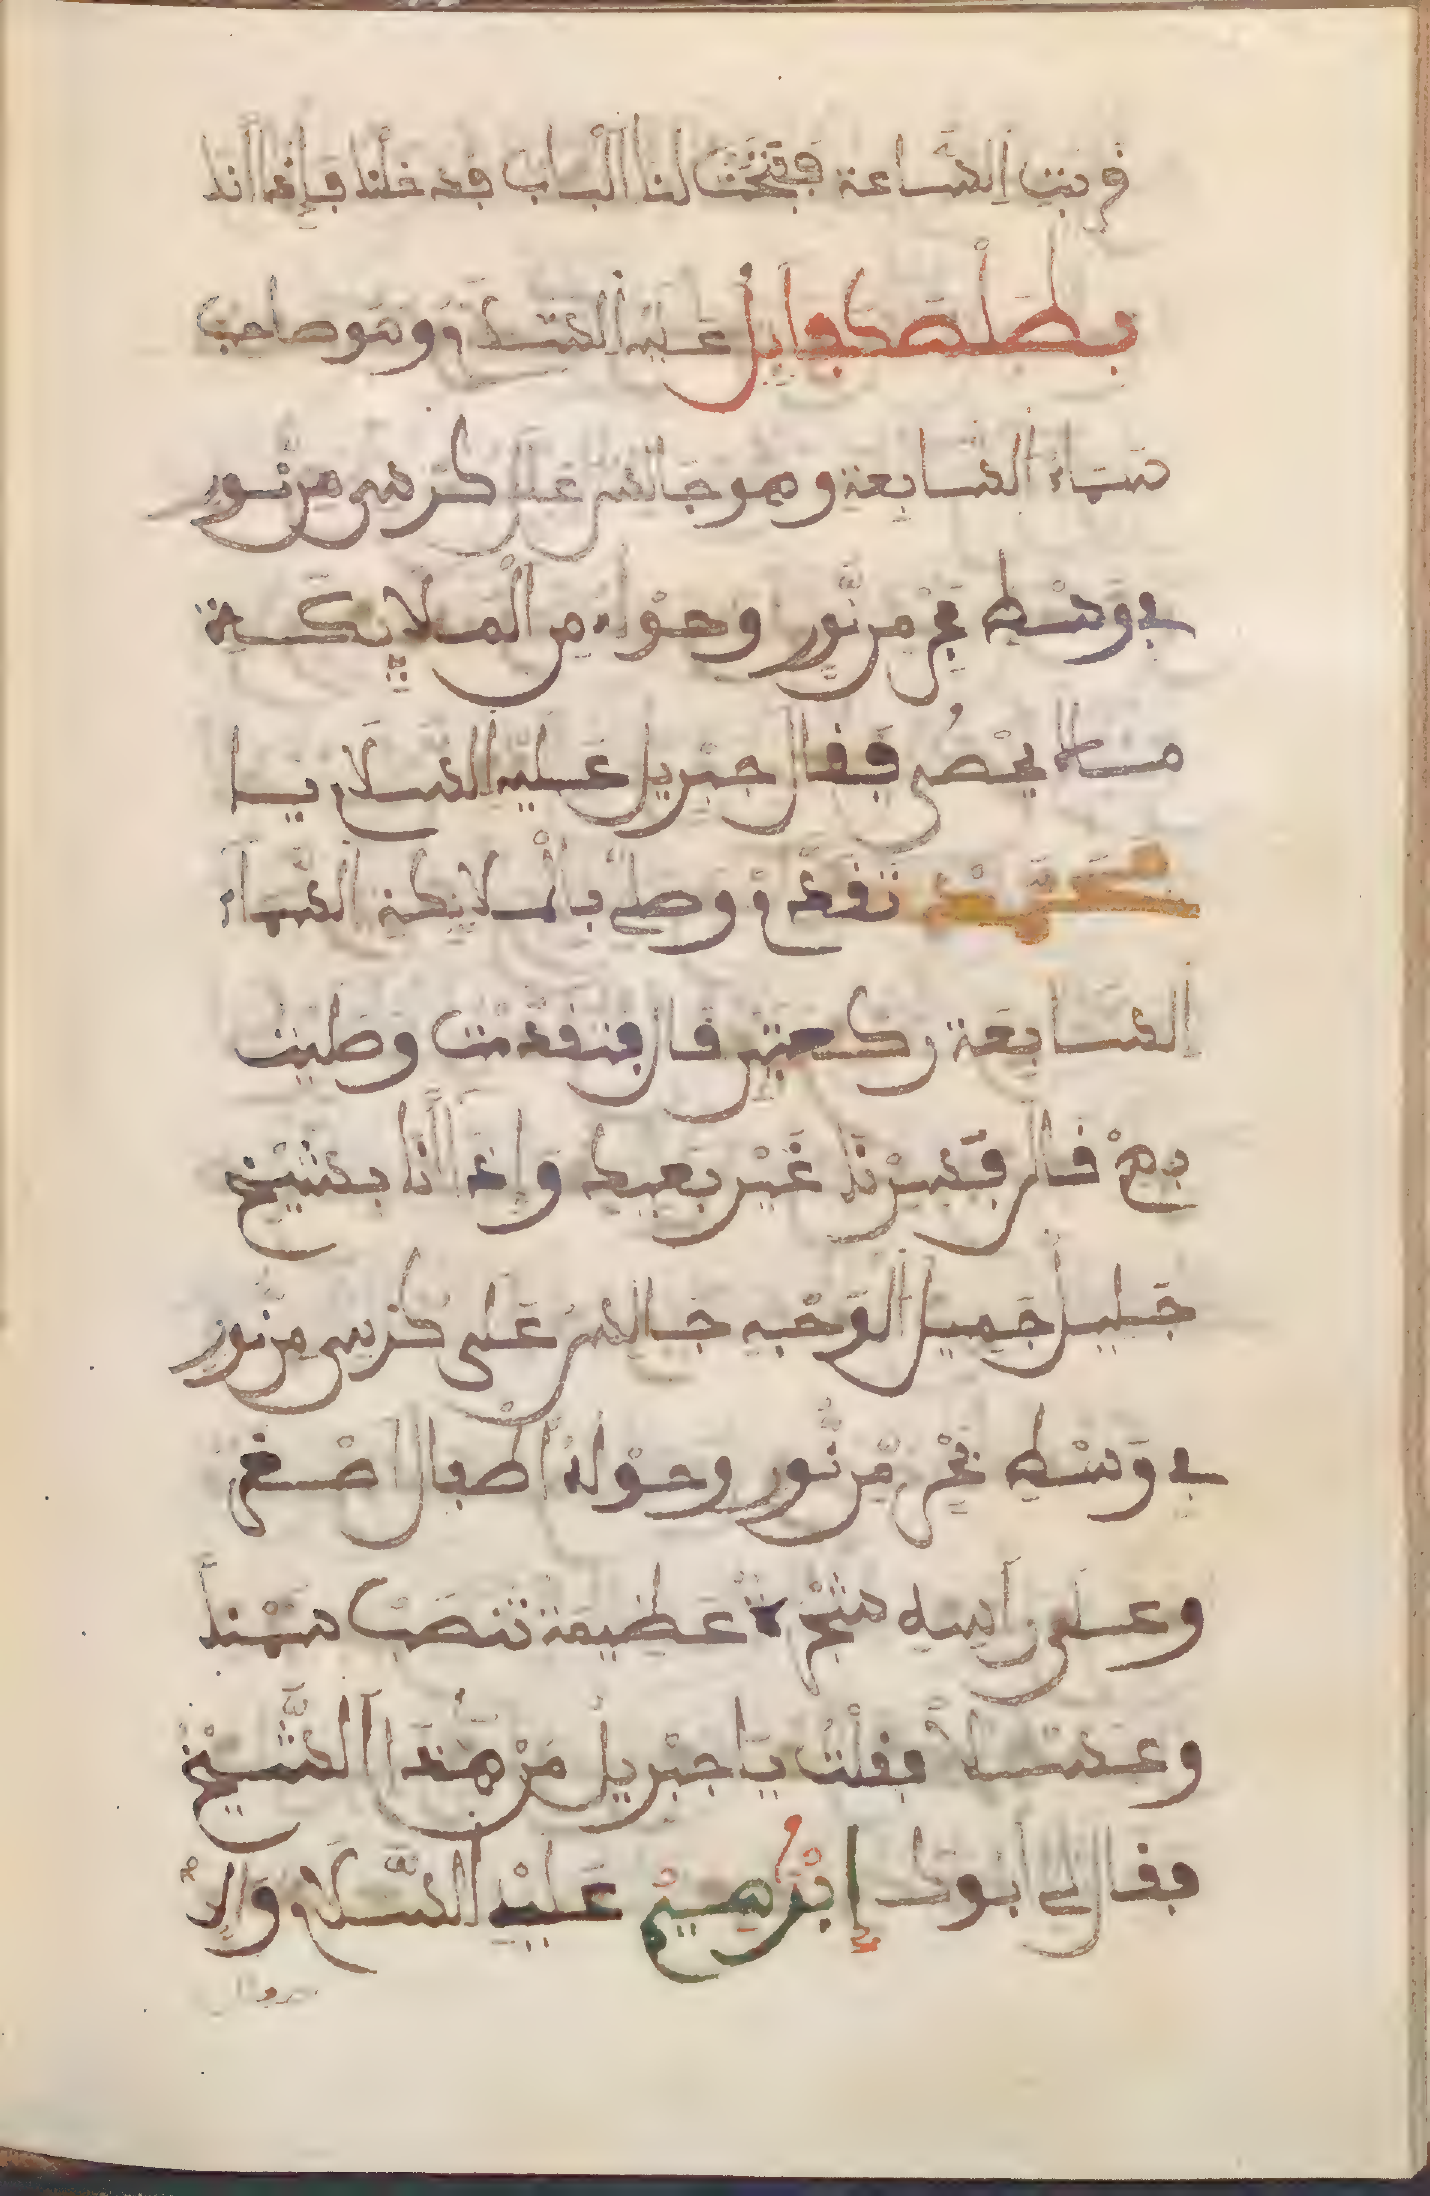 قربت الساعة ففتحت لنا الباب فدخلنا فإذا أنا
بطلصكوايل عليه السلام وهو صاحب
سماء السابعة وهو جالس على كرسي من نور
في وسطه بحر من نور وحوله من الملايكة
ما لا يحصى فقال جبريل عليه السلام يا
محمد تقدم وصل بالملايكة السماء
السابعة ركعتين قال فتقدمت وصليت
بهم قال فسرنا غير بعيد وإذا أنا بشيخ
جليل جميل الوجه جالس على كرسي من نور
في وسطه بحر من نور وحوله أطفال صغر
وعلى رأسه شجرة عظيمة تنصب سمنا
وعسلا فقلت يا جبريل من هذا الشيخ
فقال لي أبوك إبرهيم عليه السلام